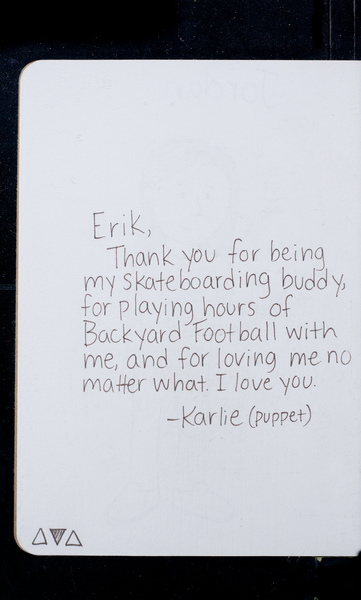 Erik,
Thank you for being
my skateboarding buddy,
for playing hours of
Backyard Football with
me, and for loving me no
matter what. I love you.
-Karlie (puppet)